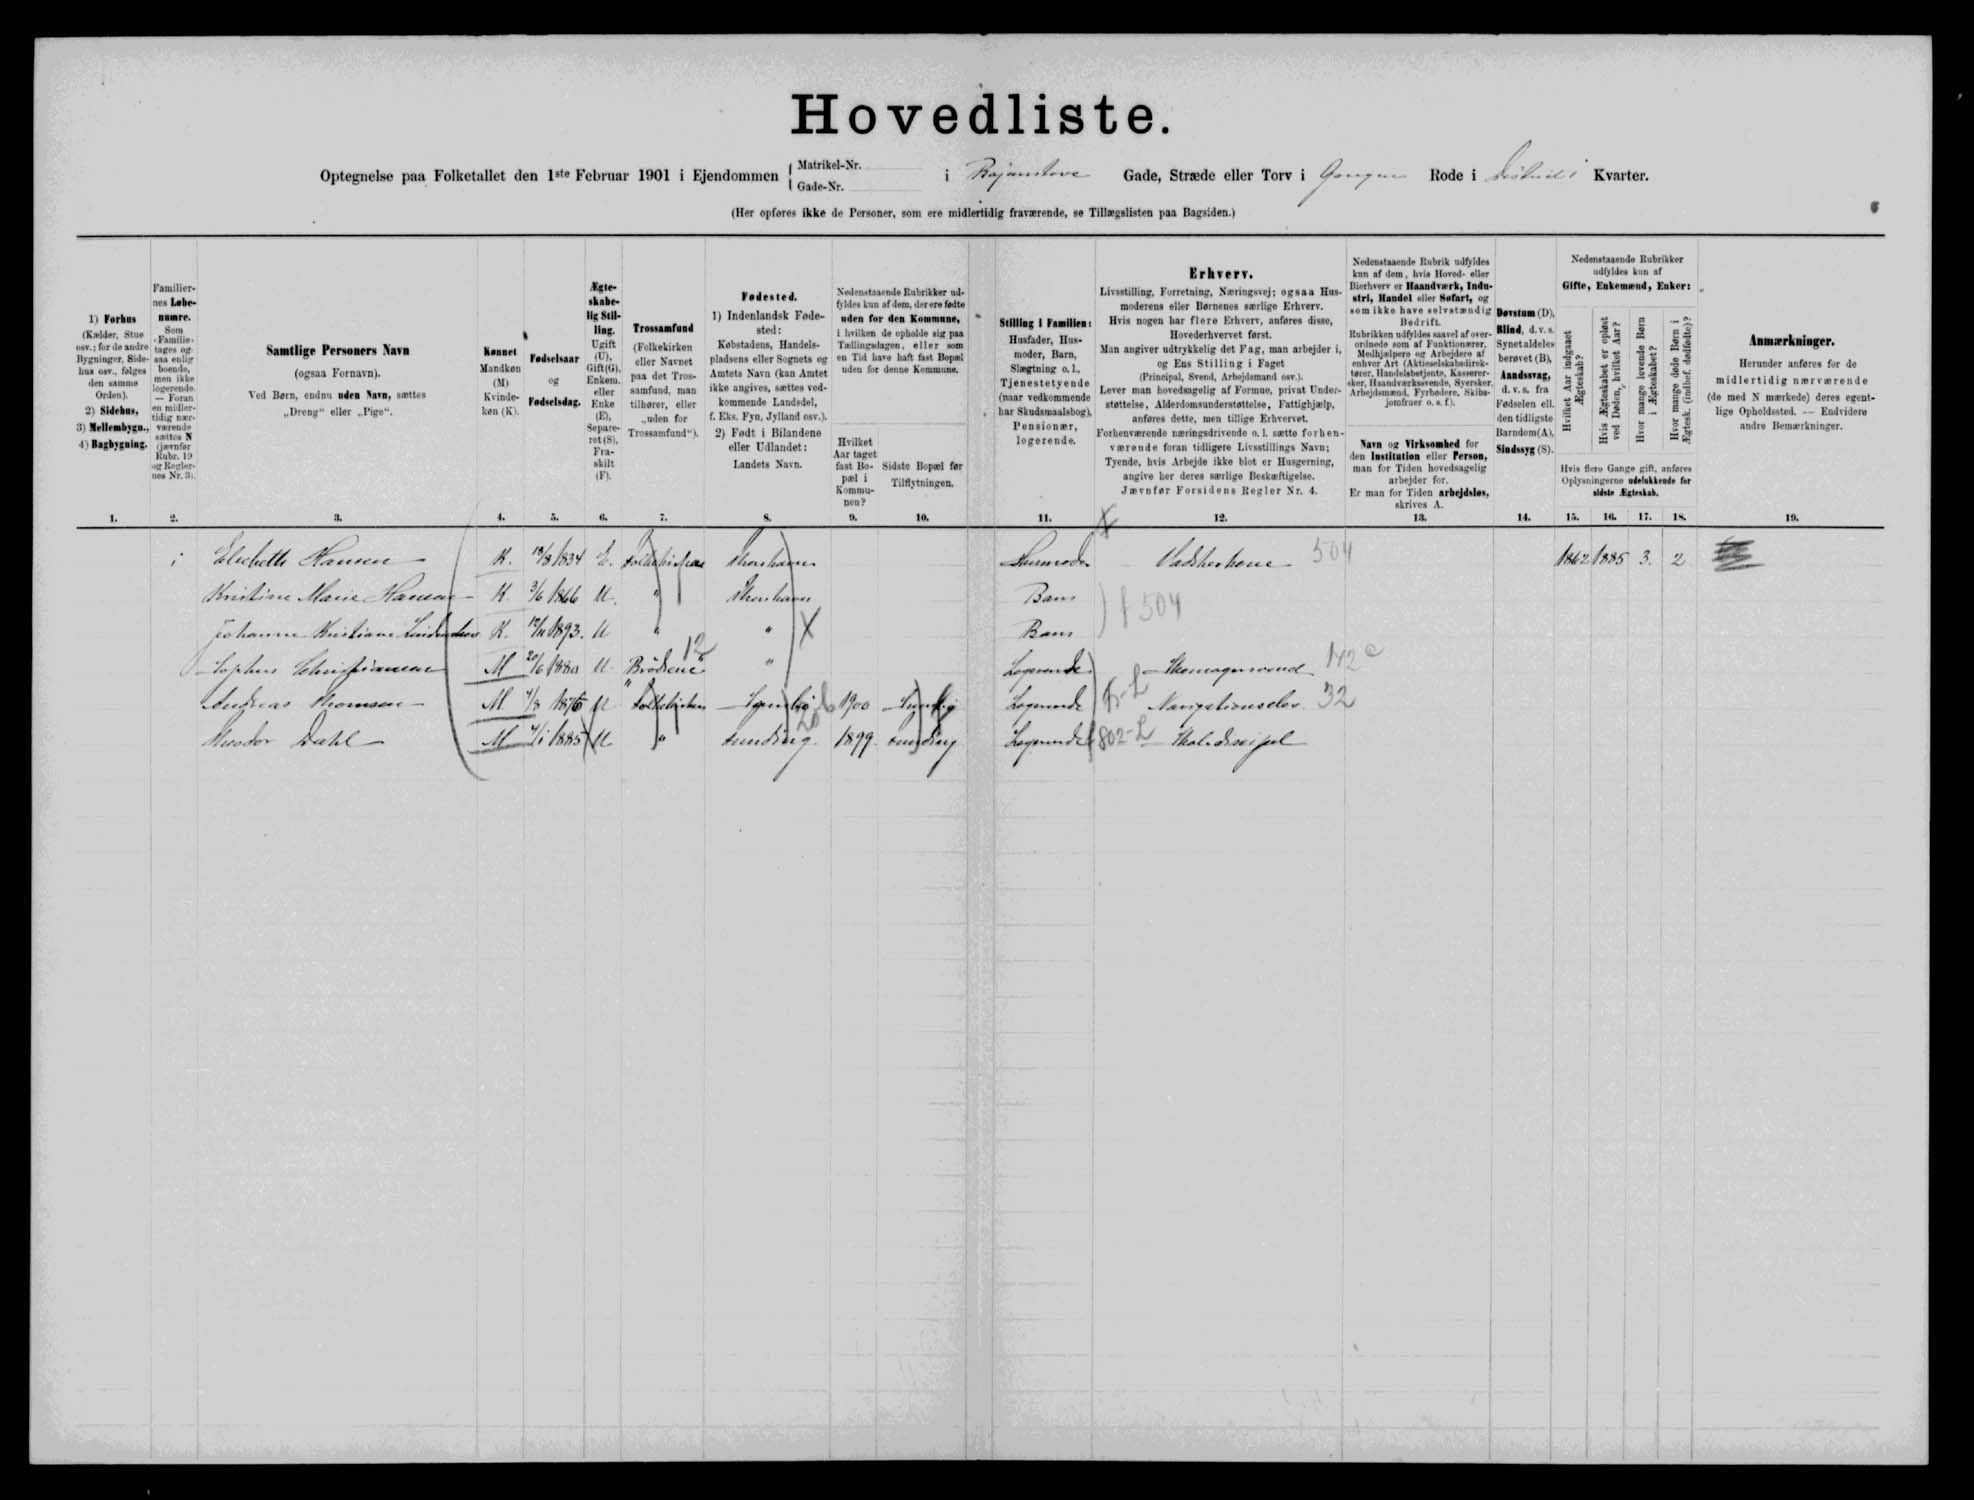 Hovedliste.
Optegnelse paa Folketallet den 1ste Februar 1901 i Ejendommen { Matrikel-Nr. Gade-Nr. i Bajanstove Gade, Stræde eller Torv i Gongen Rode i Distrikt i Kvarter.
(Her opføres ikke de Personer, som ere midlertidig fraværende, se Tillægslisten paa Bagsiden.)
1) Forhus (Kælder, Stue osv.; for de andre Bygninger, Sidehus osv., følges den samme Orden). 2) Sidehus, 3) Mellembygn., 4) Bagbygning.
Familiernes Løbenumre. Som Familie tages ogsaa enlig boende, men ikke logerende. — Foran en midlertidig nærværende sættes N (jævnfør Rubr. 19 og Reglernes Nr. 3).
Samtlige Personers Navn (ogsaa Fornavn). Ved Børn, endnu uden Navn, sættes „Dreng" eller „Pige".
Kønnet Mandkøn (M) Kvindekøn (K).
Fødselsaar og Fødselsdag.
Ægteskabelig Stilling. Ugift (U), Gift (G), Enkem. eller Enke (E), Separeret (S), Fraskilt (F).
Trossamfund (Folkekirken eller Navnet paa det Trossamfund, man tilhører, eller „uden for Trossamfund").
Fødested. 1) Indenlandsk Fødested: Købstadens, Handelspladsens eller Sognets og Amtets Navn (kan Amtet ikke angives, sættes vedkommende Landsdel, f. Eks. Fyn, Jylland osv.). 2) Født i Bilandene eller Udlandet: Landets Navn.
Nedenstaaende Rubrikker udfyldes kun af dem, der ere fødte uden for den Kommune, i hvilken de opholde sig paa Tællingsdagen, eller som en Tid have haft fast Bopæl uden for denne Kommune.
Hvilket Aar taget fast Bopæl i Kommunen?
Sidste Bopæl før Tilflytningen.
Stilling i Familien: Husfader, Husmoder, Barn, Slægtning o. l., Tjenestetyende (naar vedkommende har Skudsmaalsbog), Pensionær, logerende.
Erhverv.
Livsstilling, Forretning, Næringsvej; ogsaa Husmoderens eller Børnenes særlige Erhverv.
Hvis nogen har flere Erhverv, anføres disse, Hovederhvervet først.
Man angiver udtrykkelig det Fag, man arbejder i, og Ens Stilling i Faget
(Principal, Svend, Arbejdsmand osv.).
Lever man hovedsagelig af Formue, privat Understøttelse, Alderdomsunderstøttelse, Fattighjælp, anføres dette, men tillige Erhvervet.
Forhenværende næringsdrivende o. l. sætte forhenværende foran tidligere Livsstillings Navn;
Tyende, hvis Arbejde ikke blot er Husgerning, angive her deres særlige Beskæftigelse.
Jævnfør Forsidens Regler Nr. 4.
Nedenstaaende Rubrik udfyldes kun af dem, hvis Hoved- eller Bierhverv er Haandværk, Industri, Handel eller Søfart, og som ikke have selvstændig Bedrift.
Rubrikken udfyldes saavel af overordnede som af Funktionærer, Medhjælpere og Arbejdere af enhver Art (Aktieselskabsdirektører, Handelsbetjente, Kasserersker, Haandværkssvende, Syersker, Arbejdsmænd, Fyrbødere, Skibsjomfruer o. s. f.).
Navn og Virksomhed for den Institution eller Person, man for Tiden hovedsagelig arbejder for.
Er man for Tiden arbejdsløs, skrives A.
Døvstum (D), Blind, d. v. s. Synet aldeles berøvet (B), Aandssvag, d. v. s. fra Fødselen ell. den tidligste Barndom (A), Sindssyg (S).
Nedenstaaende Rubrikker udfyldes kun af Gifte, Enkemænd, Enker:
Hvilket Aar indgaaet Ægteskab?
Hvis Ægteskabet er opløst ved Døden, hvilket Aar?
Hvor mange levende Børn i Ægteskabet?
Hvor mange døde Børn i Ægtesk. (indbef. dødfødte)?
Hvis flere Gange gift, anføres Oplysningerne udelukkende for sidste Ægteskab.
Anmærkninger.
Herunder anføres for de midlertidig nærværende (de med N mærkede) deres egentlige Opholdssted. — Endvidere andre Bemærkninger.
1. 2. 3. 4. 5. 6. 7. 8. 9. 10. 11. 12. 13. 14. 15. 16. 17. 18. 19.
i Elsebeth Hansen K. 18/8 1834 E. Folkekirken Thorshavn Husmoder Vadskerkone 504 1862 1885 3. 2
Kristine Marie Hansen K 3/6 1866 U. " Thorshavn Barn 504
Johanne Kristiane K. 12/11 1893. U " " X Barn
Sophus Christiansen M 20/6 1880 U Brödrene 12 " Logerende Skomagersvend 142
Andreas Thomsen M 4/8 1876 U Folkekirken 1900 Logerende Navigationselev 32
Theodor Dahl M 4/1 1885 U " Sunding 1899 Sunding Logerende 802-L Skolediscipel